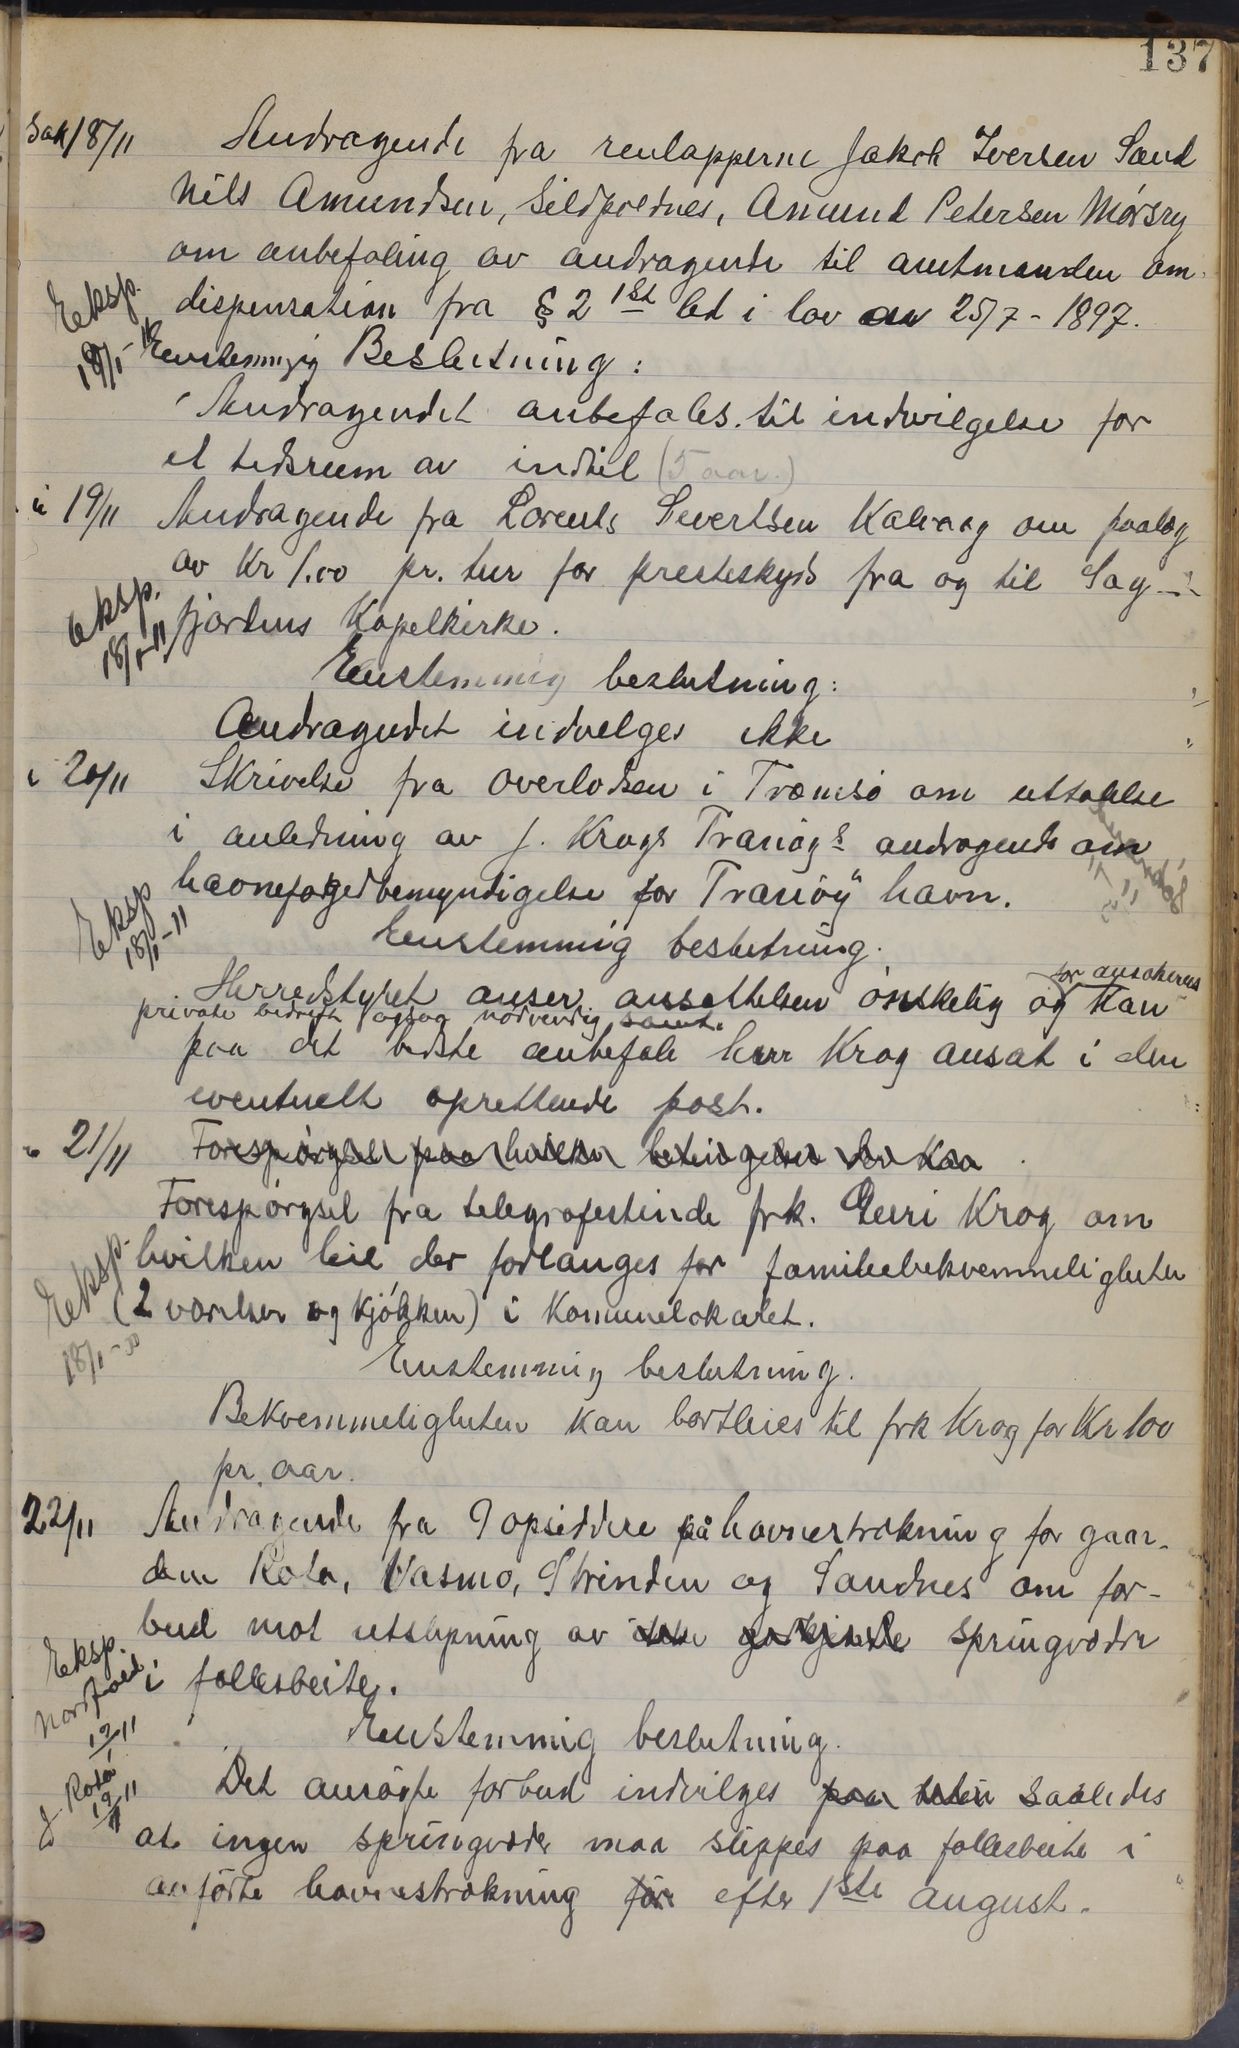 137
Sak 18/11 Andragende fra renlapperne Jakob Iversen Sand
Nils Amundsen, Sildpoldnes, Amund Petersen Mörsry
om anbefaling av andragende til amtmanden om
dispensation fra § 2 1st led i lov av 25/7 - 1897.
Eksp. 18/1-11
Enstemmig Beslutning:
Andragendet anbefales til indvilgelse for
et tidsrum av indtil (5 aar.)
" 19/11 Andragende fra Lorents Severtsen Kalvaag om paalæg
av Kr 1.00 pr. tur for presteskyds fra og til Sag-
Eksp. 18/1-11
fjordens Kapelkirke.
Enstemmig beslutning:
Andragendet indvelges ikke
" 20/11 Skrivelse fra overlodsen i Tromsö om uttalelse
i anledning av J. Krogs Tranöys andragende om
havnefogedbemyndigelse for Tranöy havn.
Eksp 18/1-11
Enstemmig beslutning.
Herredstyret anser ansættelsen önskelig og for ansökerens
private bedrift ogsaa nödvendig samt kan
paa det bedste anbefale herr Krog ansat i den
eventuelt oprettende post.
" 21/11 Forespörgsel paa hvilke betingelser der kan
Forespörgsel fra telegrafistinde frk. Guri Krog om
hvilken leie der forlanges for familiebekvemmeligheter
Eksp. 18/1-
(2 værelser og kjökken) i Komunelokalet.
Enstemmig beslutning.
Bekvemmeligheten kan bortleies til frk Krog for Kr 100
pr. aar.
22/11 Andragende fra 9 opsiddere på havnestrækning for gaar-
dene Rota, Vasmo, Strinden og Sandnes om for-
bud mot utslipning av ikke godkjendte springvædre
i fællesbeite.
Eksp. Nordfold 19/1 11
Enstemmig beslutning.
& Rota 19/1 11
Det ansögte forbud indvilges paa saaledes
at ingen springvæder maa slippes paa fællesbeite i
anförte havnestrækning för efter 1ste august.